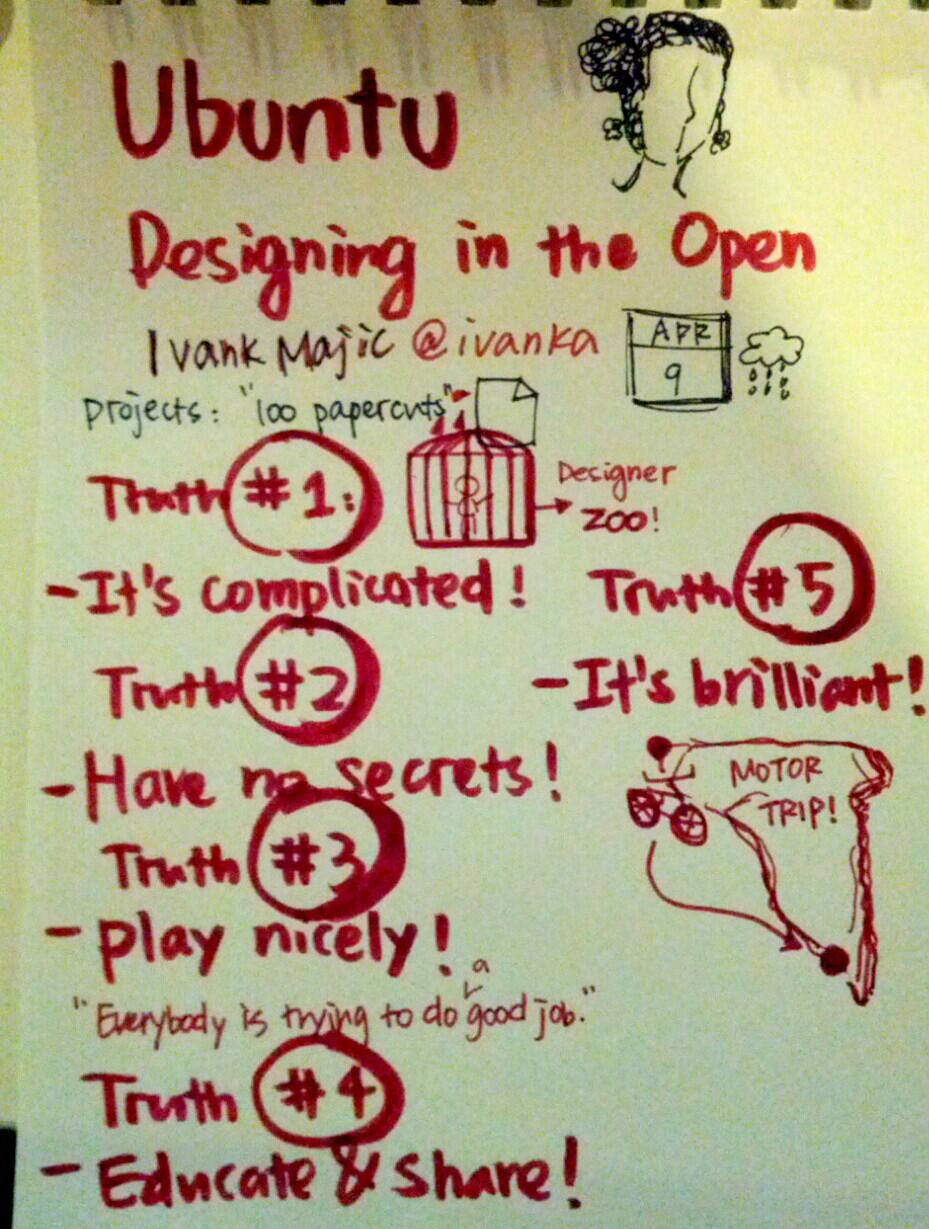 Ubuntu
Designing in the Open
Ivank Majic @ivanka
APR
9
projects: "100 papercuts"
Truth #1:
Designer
ZOO!
-It's complicated!
Truth #2
-Have no secrets!
Truth #3
-play nicely!
"Everybody is trying to do a good job."
Truth #4
-Educate & share!
Truth #5
-It's brilliant!
MOTOR
TRIP!